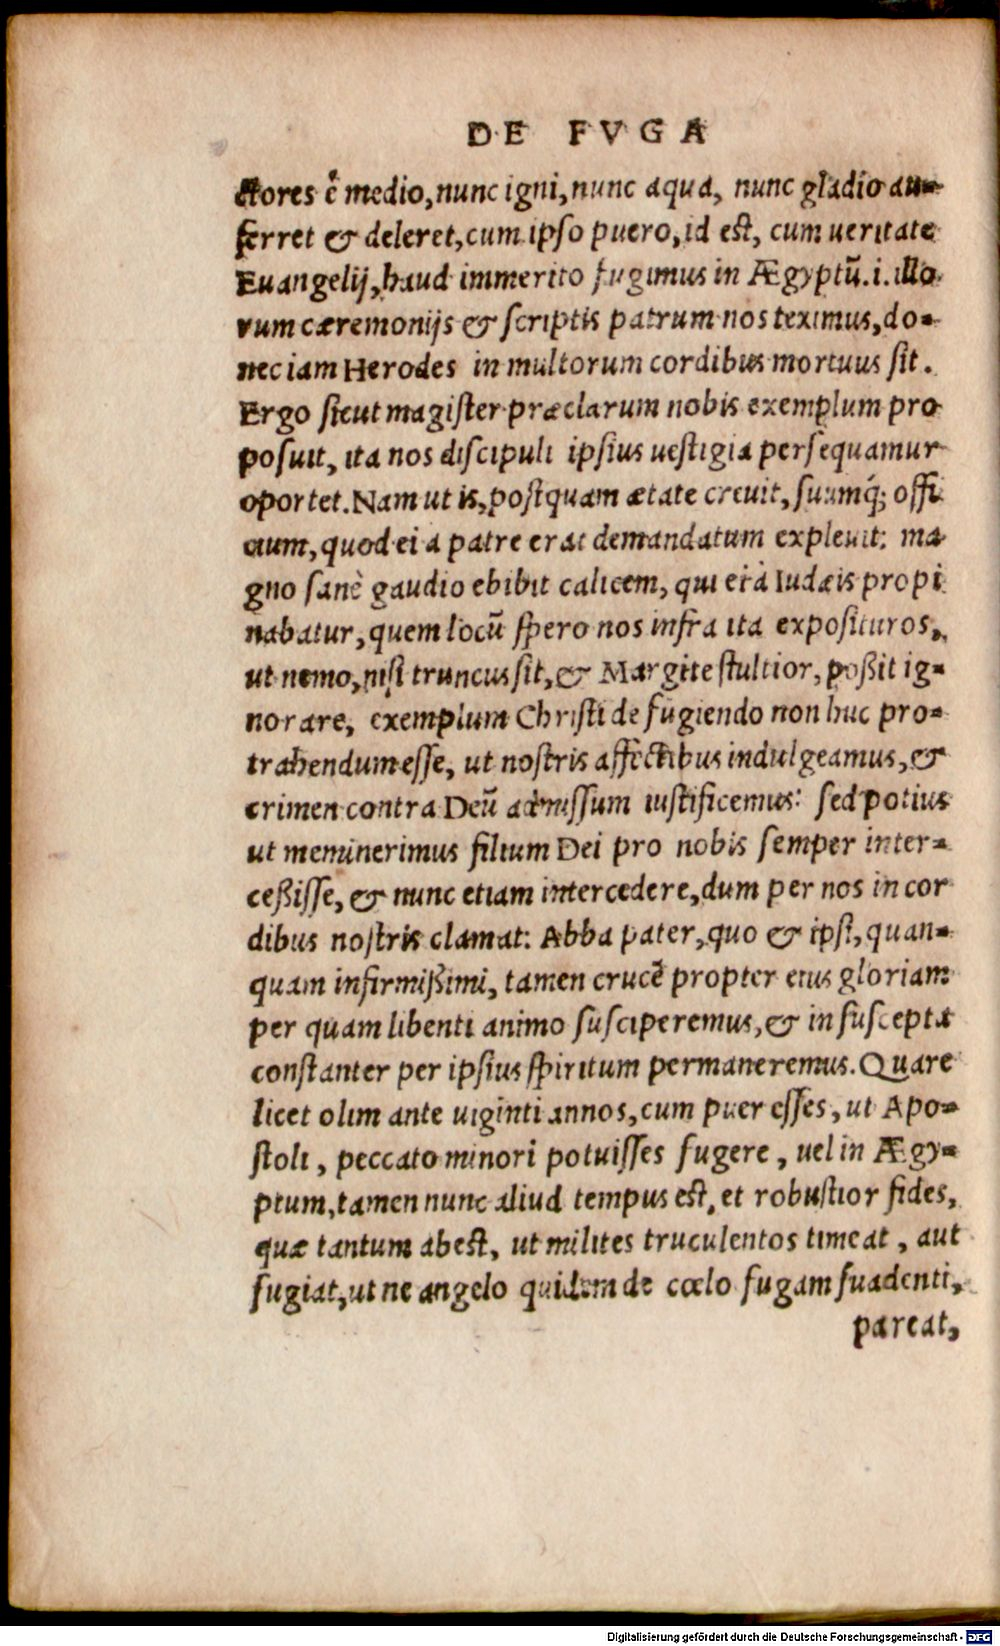 DE FVGA
ctores è medio, nunc igni, nunc aqua, nunc gladio au=
ferret & deleret, cum ipso puero, id est, cum ueritate
Euangelij, haud immerito fugimus in Ægyptũ .i. illo
rum cæremonijs & scriptis patrum nos teximus, do=
nec iam Herodes in multorum cordibus mortuus sit.
Ergo sicut magister præclarum nobis exemplum pro
posuit, ita nos discipuli ipsius uestigia persequamur
oportet. Nam ut is, postquam ætate creuit, suumq́; offi
cium, quod ei à patre erat demandatum expleuit: ma
gno sanè gaudio ebibit calicem, qui ei à Iudæis propi
nabatur, quem locũ spero nos infra ita exposituros,
ut nemo, nisi truncus sit, & Margite stultior, poßit ig=
norare, exemplum Christi de fugiendo non huc pro=
trahendum esse, ut nostris affectibus indulgeamus, &
crimen contra Deũ admissum iustificemus: sed potius
ut meminerimus filium Dei pro nobis semper inter=
ceßisse, & nunc etiam intercedere, dum per nos in cor
dibus nostris clamat: Abba pater, quo & ipsi, quan=
quam infirmißimi, tamen crucẽ propter eius gloriam
per quam libenti animo susciperemus, & in suscepta
constanter per ipsius spiritum permaneremus. Quare
licet olim ante uiginti annos, cum puer esses, ut Apo=
stoli, peccato minori potuisses fugere, uel in Ægy=
ptum, tamen nunc aliud tempus est, et robustior fides,
quæ tantum abest, ut milites truculentos timeat, aut
fugiat, ut ne angelo quidem de cœlo fugam suadenti,
pareat,
Digitalisierung gefördert durch die Deutsche Forschungsgemeinschaft - DFG